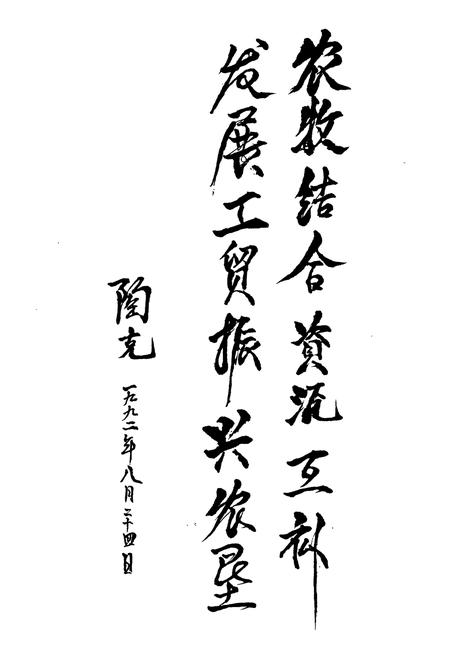 农牧结合資源互补
发展工貿振兴农垦
陶克
一九九二年八月二十四日